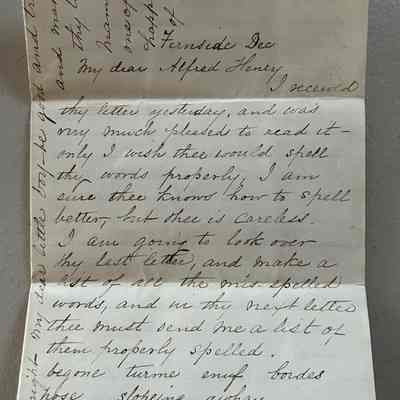 Fernside Dec
My dear Alfred Henry
I received
thy letter yesterday, and was
very much pleased to read it-
only I wish thee would spell
thy words properly, I am
sure thee knows how to spell
better, but thee is careless.
I am going to look over
thy last letter, and make a
list of all the mis-spelled
words, and in thy next letter
thee must send me a list of
them properly spelled.
begone turme enuf bordes
hose slopeing
my dear little boy be good and
and
thy
Mam
one of
happ
of